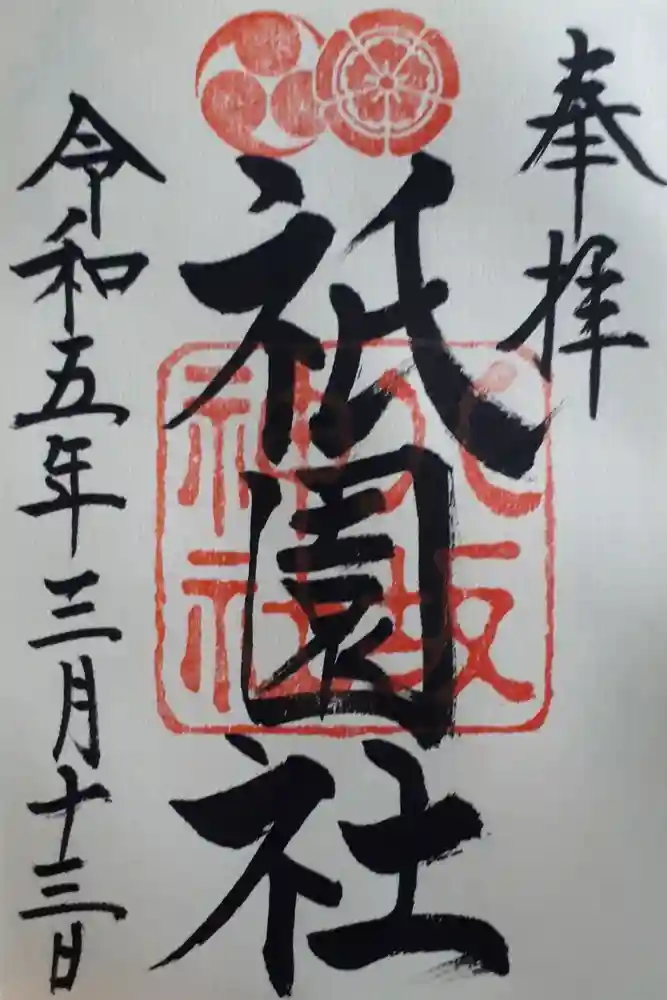 奉拝
祇園社
八坂
神社
令和五年三月十三日